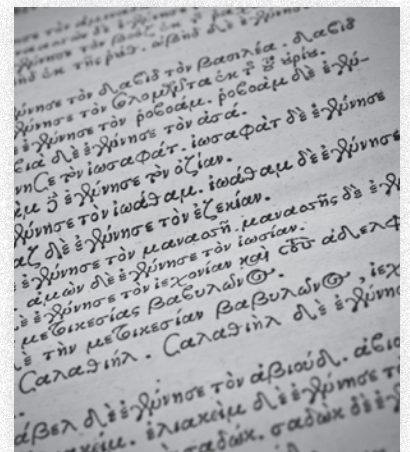 ἐκ τῆς ῥούθ. ὠβὴδ δὲ
έννησε τὸν δαβὶδ τὸν βασιλέα. δαβὶδ
ύννησε τὸν σολομῶντα ἐκ τ οὐρίου.
ἐγέννησε τὸν ῥοβοάμ. ῥοβοὰμ δὲ ἐγέν-
βιὰ δὲ ἐγέννησε τὸν ἀσά.
νησε τὸν ἰωσαφάτ. ἰωσαφὰτ δὲ ἐγέννησε
ὰμ δὲ ἐγέννησε τὸν ὀζίαν.
έννησε τὸν ἰωάθαμ. ἰωάθαμ δὲ ἐγέννησε
αζ δὲ ἐγέννησε τὸν ἐζεκίαν.
ἐγέννησε τὸν μανασσῆ. μανασσῆς δὲ ἐγέ
ἀμὼν δὲ ἐγέννησε τὸν ἰωσίαν.
ὲ ἐγέννησε τὸν ἰεχονίαν καὶ τοὺς ἀδελφ
μετοικεσίας βαβυλῶνος.
ὲ τὴν μετοικεσίαν βαβυλῶνος, ἰεχ
Σαλαθιήλ. Σαλαθιὴλ δὲ ἐγέννησ
άβελ δὲ ἐγέννησε τὸν ἀβιούδ. ἀβιο
ιακείμ. ἐλιακεὶμ δὲ ἐγέννησε τ
σαδώκ. σαδὼκ δὲ ἐγ